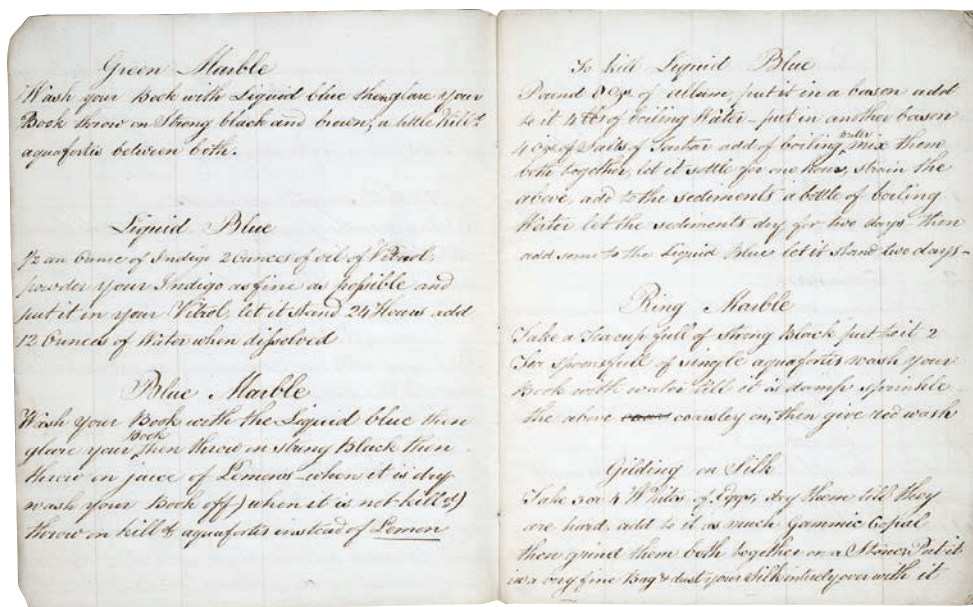 Green Marble
Wash your Book with Liquid blue then glare your
Book throw on Strong black and brown, a little Kill'd
aquafortis between both.
Liquid Blue
1/2 an Ounce of Indigo 2 Ounces of oil of Vitriol
powder your Indigo as fine as possible and
put it in your Vitrol, let it stand 24 Hours add
12 Ounces of Water when dissolved
Blue Marble
Wash your Book with the Liquid blue then
glare your Book then throw on strong Black then
throw on juice of Lemons – when it is dry
wash your Book off) when it is not kill'd)
throw on kill'd aquafortis instead of Lemon
To kill Liquid Blue
Pound 8 Ozs of allum, put it in a bason add
to it 4 lbs of boiling Water – put in another bason
4 Ozs of Salts of Tartar add of boiling water mix them
both together, let it settle for one hour, strain the
above, add to the sediments a bottle of boiling
Water let the sediments dry for two days – then
add some to the Liquid Blue let it stand two days –
Ring Marble
Take a Teacup full of Strong Black put to it 2
Tea spoonsfull of single aquafortis wash your
Book with water till it is damp sprinkle
the above coarsley on, then give red wash
Gilding on Silk
Take 3 or 4 Whites of Eggs, dry them till they
are hard, add to it as much Gammic Copial
then grind them both together on a Stone Put it
in a very fine Bag & dust your Silk intirely over with it